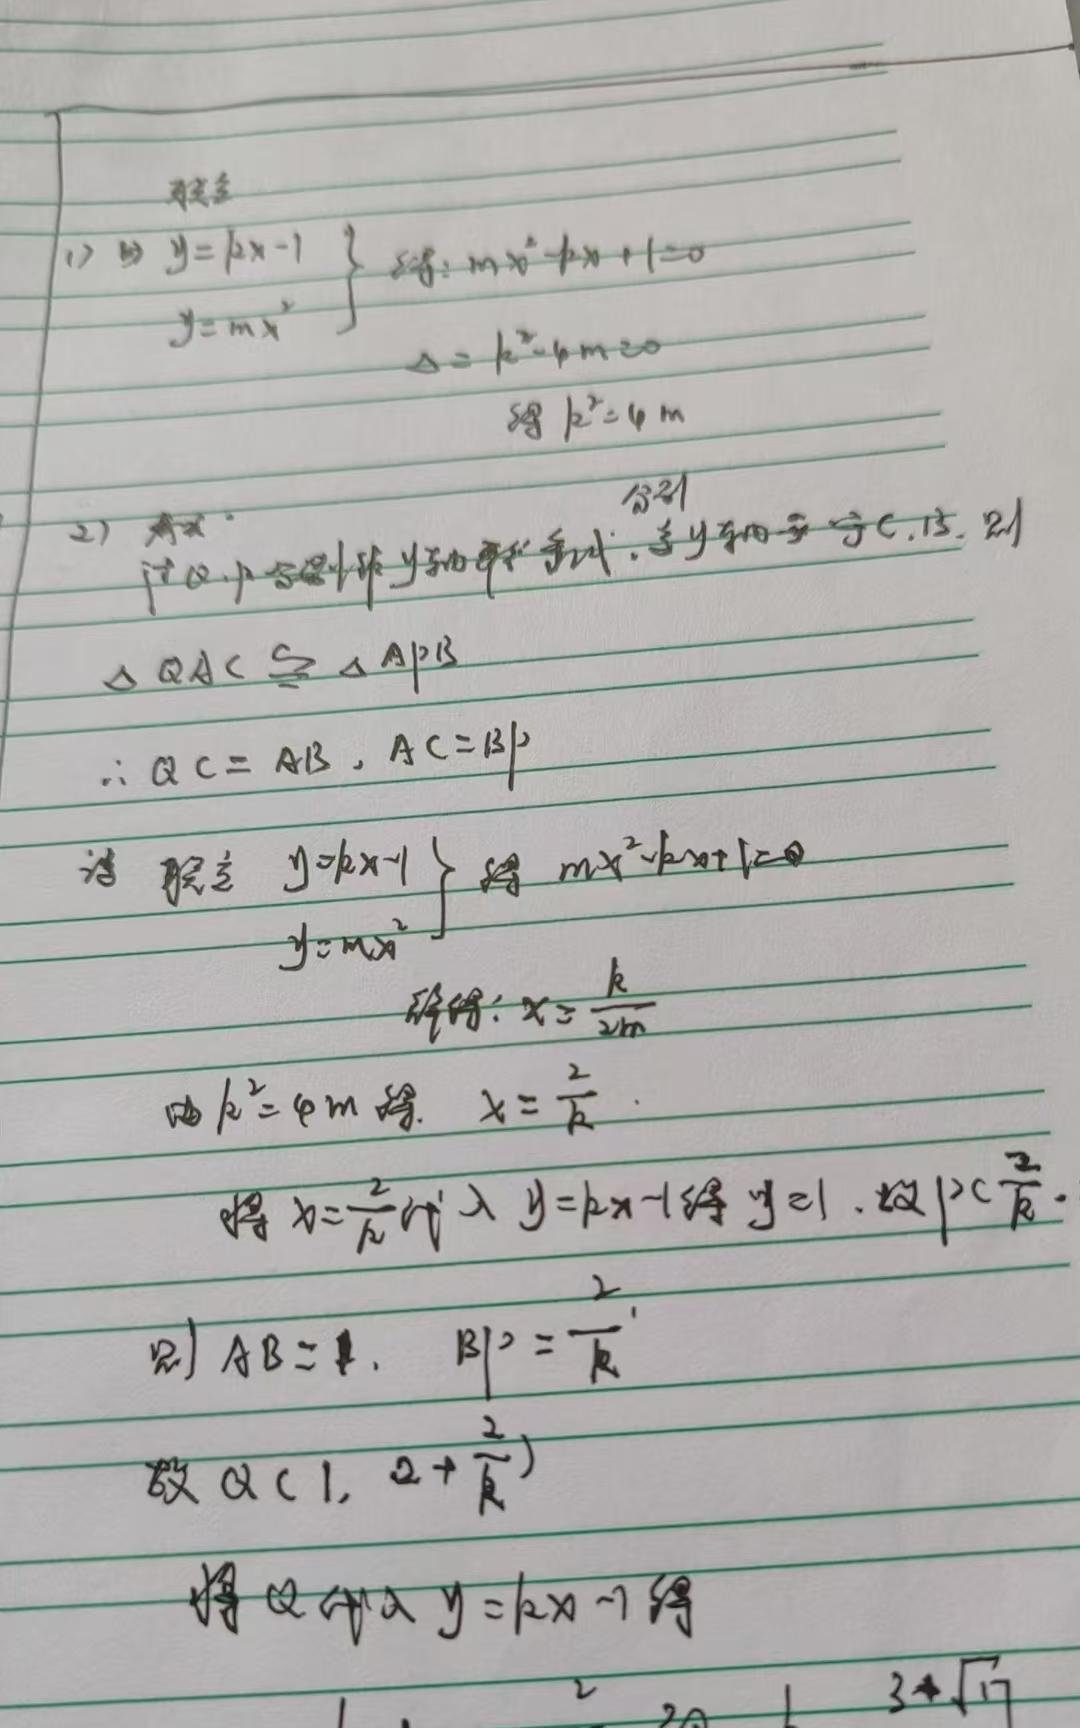 联立
1) 由 y=kx-1
y=mx² } 得: mx²-kx+1=0
△= k²-4m=0
得 k²=4m
分别
2)
过Q.P 作 y轴 . 与y轴 于C.B. 则
△QAC ≌ △APB
∴ QC = AB . AC=BP
联立 y=kx-1
y=mx² } 得 mx²-kx+1=0
解得: x= k/2m
由 k²=4m 得. x= 2/k .
将 x=2/k 代入 y=kx-1得 y=1 . 故 P( 2/k .
则 AB=1. BP= 2/k .
故 Q(1, 2+2/k)
将 Q 代入 y=kx-1 得
3+√17